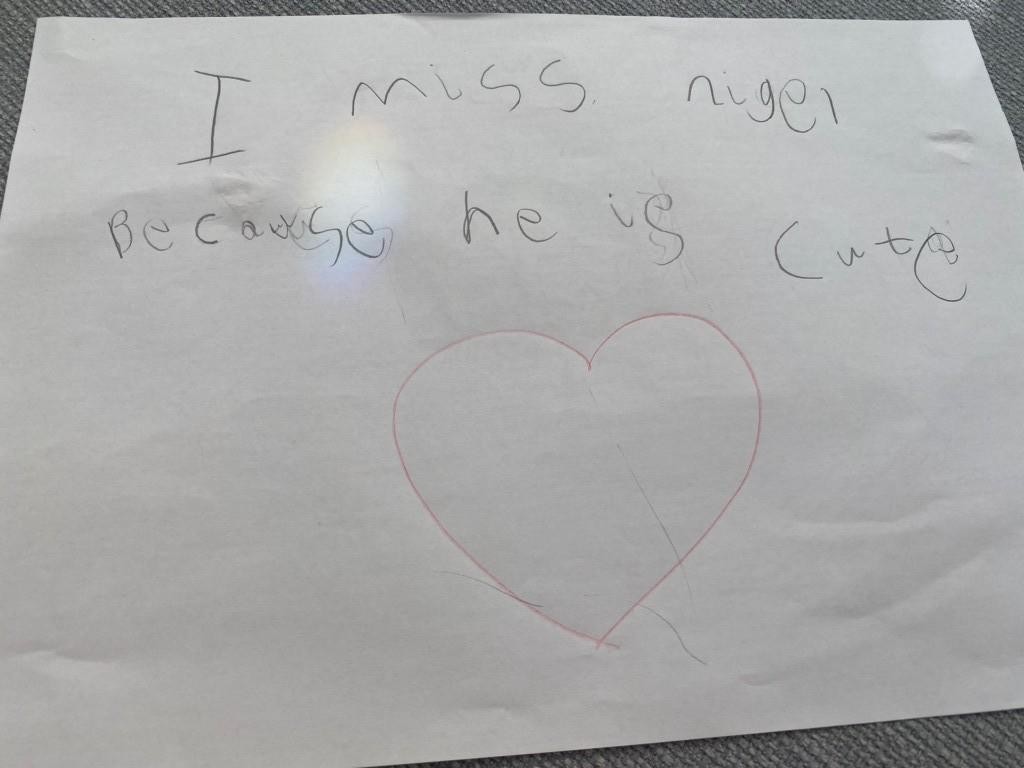 I miss nigel
Because he is cute